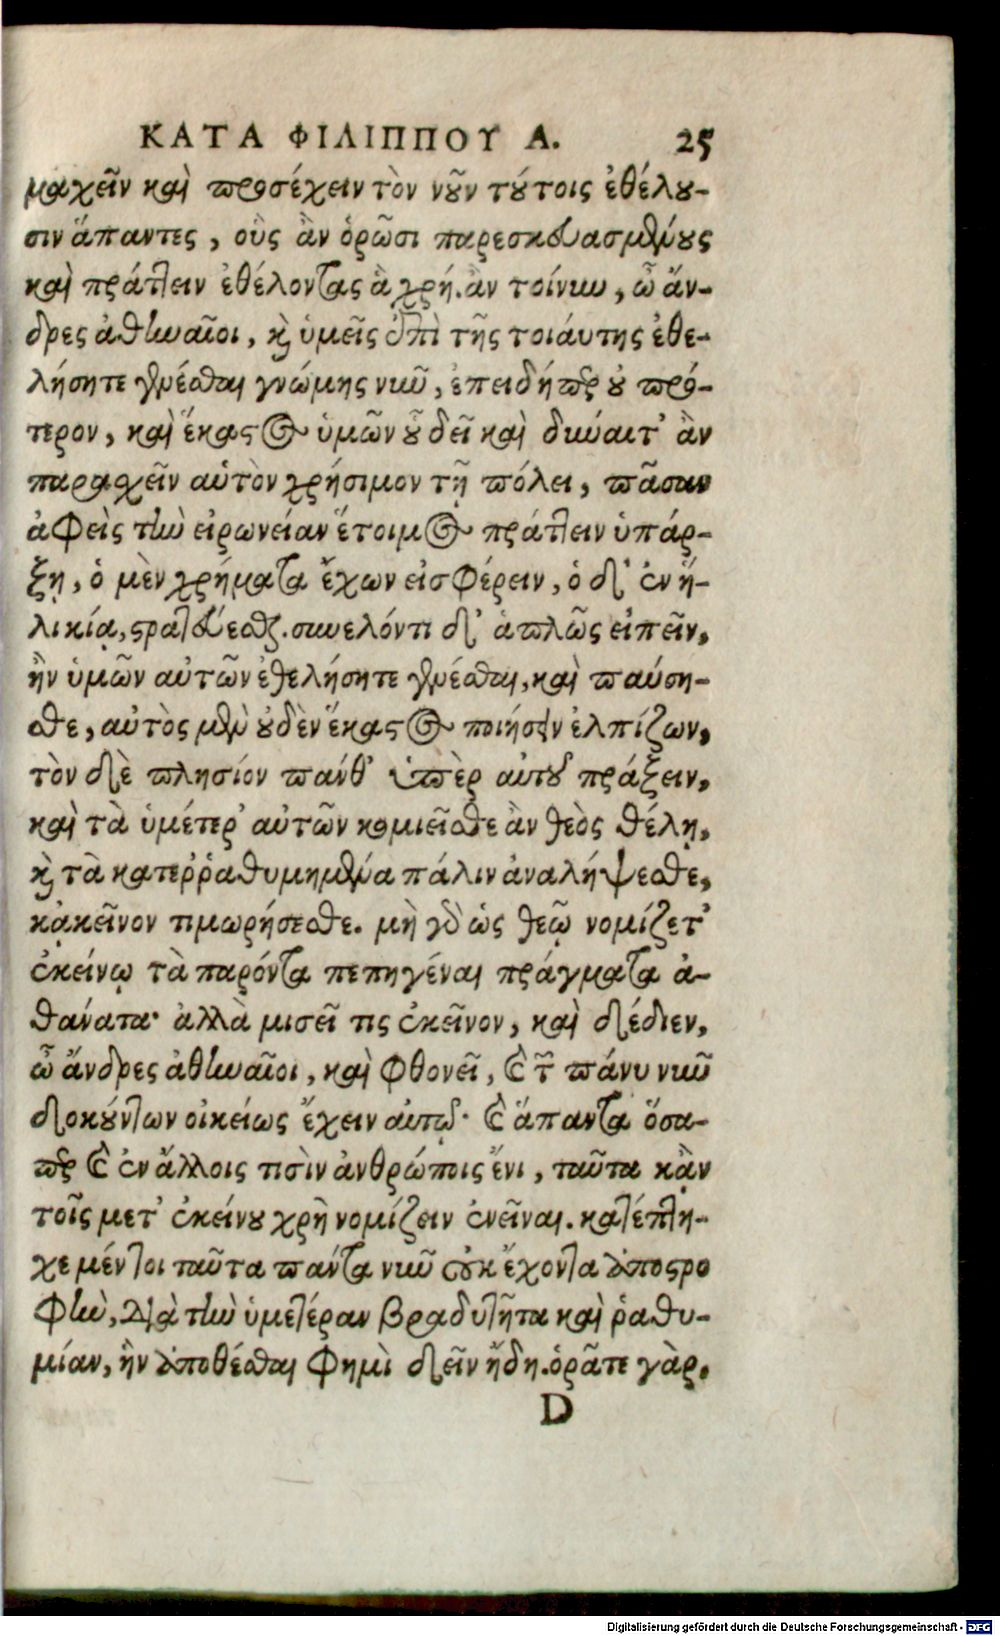 ΚΑΤΑ ΦΙΛΙΠΠΟΥ Α. 25
μαχεῖν καὶ προσέχειν τὸν νοῦν τούτοις ἐθέλου-
σιν ἅπαντες, οὓς ἂν ὁρῶσι παρεσκευασμένους
καὶ πράττειν ἐθέλοντας ἃ χρή. ἂν τοίνυν, ὦ ἄν-
δρες ἀθηναῖοι, καὶ ὑμεῖς ἐπὶ τῆς τοιάυτης ἐθε-
λήσητε γενέσθαι γνώμης νῦν, ἐπειδήπερ οὐ πρό-
τερον, καὶ ἕκαστος ὑμῶν οὗ δεῖ καὶ δύναιτ' ἂν
παραχεῖν αὑτὸν χρήσιμον τῇ πόλει, πᾶσαν
ἀφεὶς τὴν εἰρωνείαν ἕτοιμος πράττειν ὑπάρ-
ξῃ, ὁ μὲν χρήματα ἔχων εἰσφέρειν, ὁ δ' ἐν ἡ-
λικίᾳ, στρατεύεσθαι. συνελόντι δ' ἁπλῶς εἰπεῖν,
ἢν ὑμῶν αὐτῶν ἐθελήσητε γενέσθαι, καὶ παύση-
σθε, αὐτὸς μὲν οὐδὲν ἕκαστος ποιήσειν ἐλπίζων,
τὸν δὲ πλησίον πάνθ' ὑπὲρ αὐτοῦ πράξειν,
καὶ τὰ ὑμέτερ' αὐτῶν κομιεῖσθε ἂν θεὸς θέλῃ,
καὶ τὰ κατερῥαθυμημένα πάλιν ἀναλήψεσθε,
κᾀκεῖνον τιμωρήσεσθε. μὴ γὰρ ὡς θεῷ νομίζετ'
ἐκείνῳ τὰ παρόντα πεπηγέναι πράγματα ἀ-
θάνατα· ἀλλὰ μισεῖ τις ἐκεῖνον, καὶ δέδιεν,
ὦ ἄνδρες ἀθηναῖοι, καὶ φθονεῖ, καὶ τῶν πάνυ νῦν
δοκούντων οἰκείως ἔχειν αὐτῷ· καὶ ἅπαντα ὅσα-
περ καὶ ἐν ἄλλοις τισὶν ἀνθρώποις ἔνι, ταῦτα κᾂν
τοῖς μετ' ἐκείνου χρὴ νομίζειν ἐνεῖναι. κατέπτη-
χε μέντοι ταῦτα πάντα νῦν οὐκ ἔχοντα ἀποστρο
φὴν, διὰ τὴν ὑμετέραν βραδυτῆτα καὶ ῥαθυ-
μίαν, ἣν ἀποθέσθαι φημὶ δεῖν ἤδη. ὁρᾶτε γὰρ,
D
Digitalisierung gefördert durch die Deutsche Forschungsgemeinschaft - DFG